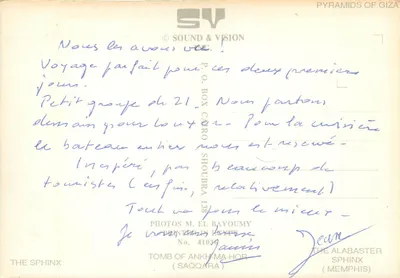 PYRAMIDS OF GIZA
SV
© SOUND & VISION
P. O. BOX CAIRO SHOUBRA 138
Nous les avons vu !
Voyage parfait pour ces deux premiers
jours.
Petit groupe de 21. Nous partons
demain pour Louxor. Pour la croisière
le bateau entier nous est réservé.
Inespéré, pas beaucoup de
touristes (enfin, relativement)
Tout va pour le mieux.
Je vous
PHOTOS M. EL BAYOUMY
No.
THE SPHINX
TOMB OF ANKH-MA-HOR
(SAQQARA)
Jean
THE ALABASTER
SPHINX
(MEMPHIS)